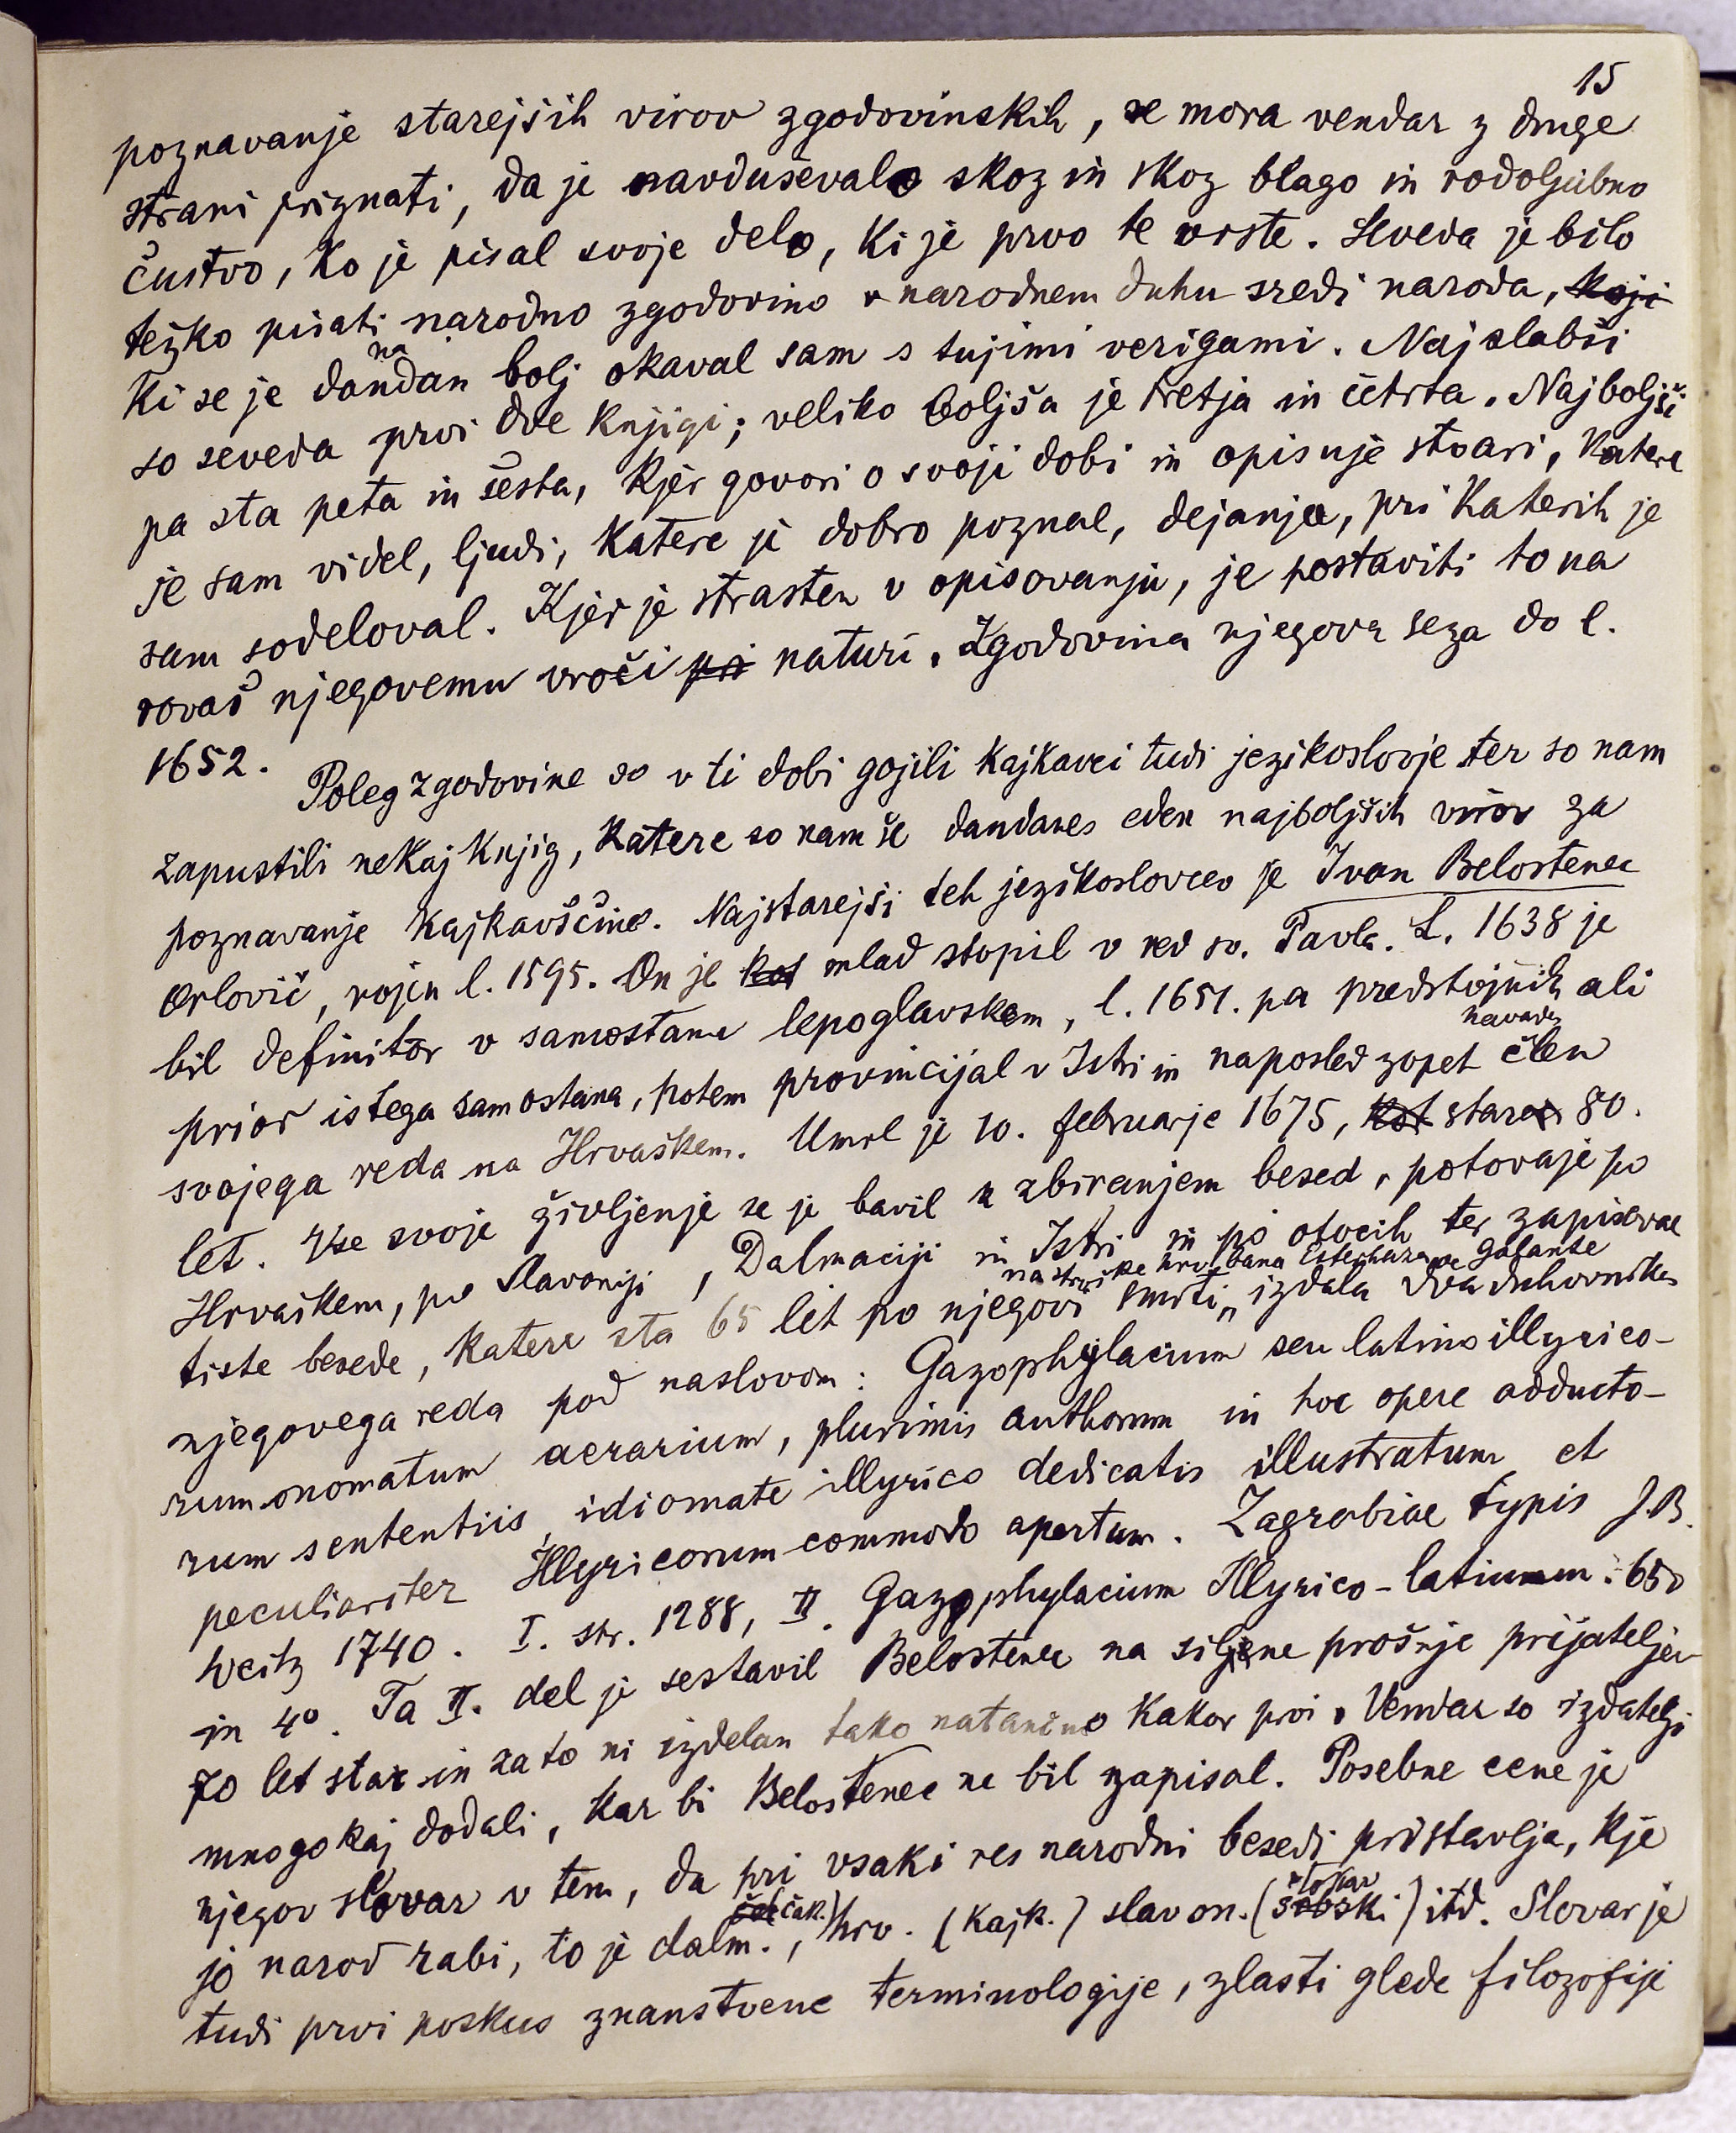 15
poznavanje starejših virov zgodovinskih, se mora vendar z druge
strani priznati, da je navduševalo skoz in skoz blago in rodoljubno
čustvo, ko je pisal svoje delo, ki je prvo te vrste. Seveda je bilo
težko pisati narodno zgodovino v narodnem duhu sredi naroda, koji
na
ki se je dandan bolj okaval sam s tujimi verigami. Najslabši
so seveda prvi dve knjigi; veliko boljša je tretja in četrta. Najboljši
pa sta peta in šesta, kjer govori o svoji dobi in opisuje stvari, katere
je sam videl, ljudi, katere je dobro poznal, dejanja, pri katerih je
sam sodeloval. Kjer je strasten v opisovanju, je postaviti to na
rovaš njegovemu vroči pri naturi. Zgodovina njegova sega do l.
1652.
Poleg zgodovine so v ti dobi gojili kajkavci tudi jezikoslovje ter so nam
zapustili nekaj knjig, katere so nam še dandanes eden najboljših virov za
poznavanje kajkavščine. Najstarejši teh jezikoslovcev je Ivan Belostenec
Orlovič, rojen l. 1595. On je kot mlad stopil v red sv. Pavla. L. 1638 je
bil definitor v samostanu lepoglavskem, l. 1651. pa predstojnik ali
navaden
prior istega samostana, potem provincijal v Istri in naposled zopet člen
svojega reda na Hrvaškem. Umrl je 10. februarje 1675, kot star 80.
let. Vse svoje življenje se je bavil z zbiranjem besed, potovaje po
Hrvaškem, po Slavoniji, Dalmaciji in Istri in po otocih ter zapisoval
na stroške hrv. bana Esterhaza de Galante
tiste besede, katere sta 65 let po njegovi smrti „ izdala dva duhovnika
njegovega reda pod naslovom: Gazophylacium seu latino illyrico-
rum onomatum aerarium, plurimis authorum in hoc opere adducto-
rum sententiis, idiomate illyrico dedicatis illustratum et
peculiariter Illyricorum commodo apertum. Zagrabiae typis J.B.
Weitz 1740. I. str. 1288, II. Gazophylacium Illyrico-latinum. 650
in 4°. Ta II. del je sestavil Belostenec na siljene prošnje prijateljev
70 let star in zato ni izdelan tako natančno kakor prvi. Vendar so izdatelji
mnogokaj dodali, kar bi Belostenec ne bil zapisal. Posebne cene je
njegov slovar v tem, da pri vsaki res narodni besedi pristavlja, kje
čak.) štokav
jo narod rabi, to je dalm., hrv. (kajk.) slavon. (srbski) itd. Slovar je
tudi prvi poskus znanstvene terminologije, zlasti glede filozofije